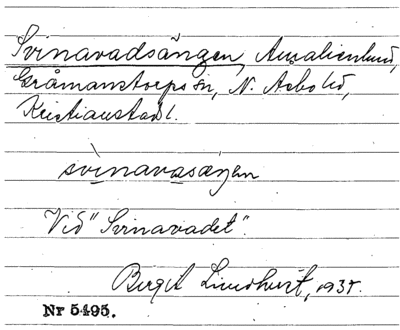 Svinavadsängen, Amalienlund,
Gråmanstorps sn, N. Åsbo hd,
Kristianstads l.
svinavasäŋen
Vid "Svinavadet".
Birgit Lindhurst, 1935.
Nr 5495.